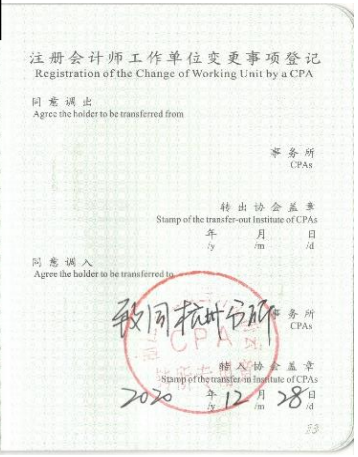 注册会计师工作单位变更事项登记
Registration of the Change of Working Unit by a CPA
同意调出
Agree the holder to be transferred from
事务所
CPAs
转出协会盖章
Stamp of the transfer-out Institute of CPAs
年 月 日
/y /m /d
同意调入
Agree the holder to be transferred to
致同杭州分所 事务所
CPAs
CPA
转入协会盖章
Stamp of the transfer-in Institute of CPAs
2020 年 12 月 28 日
/y /m /d